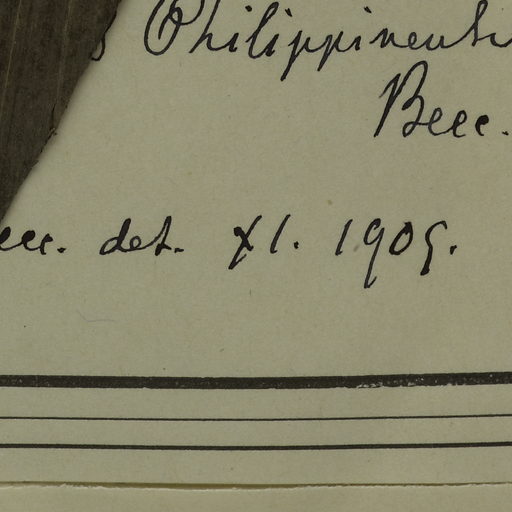 s Philippinensi
Becc.
ecc. det. XI. 1909.